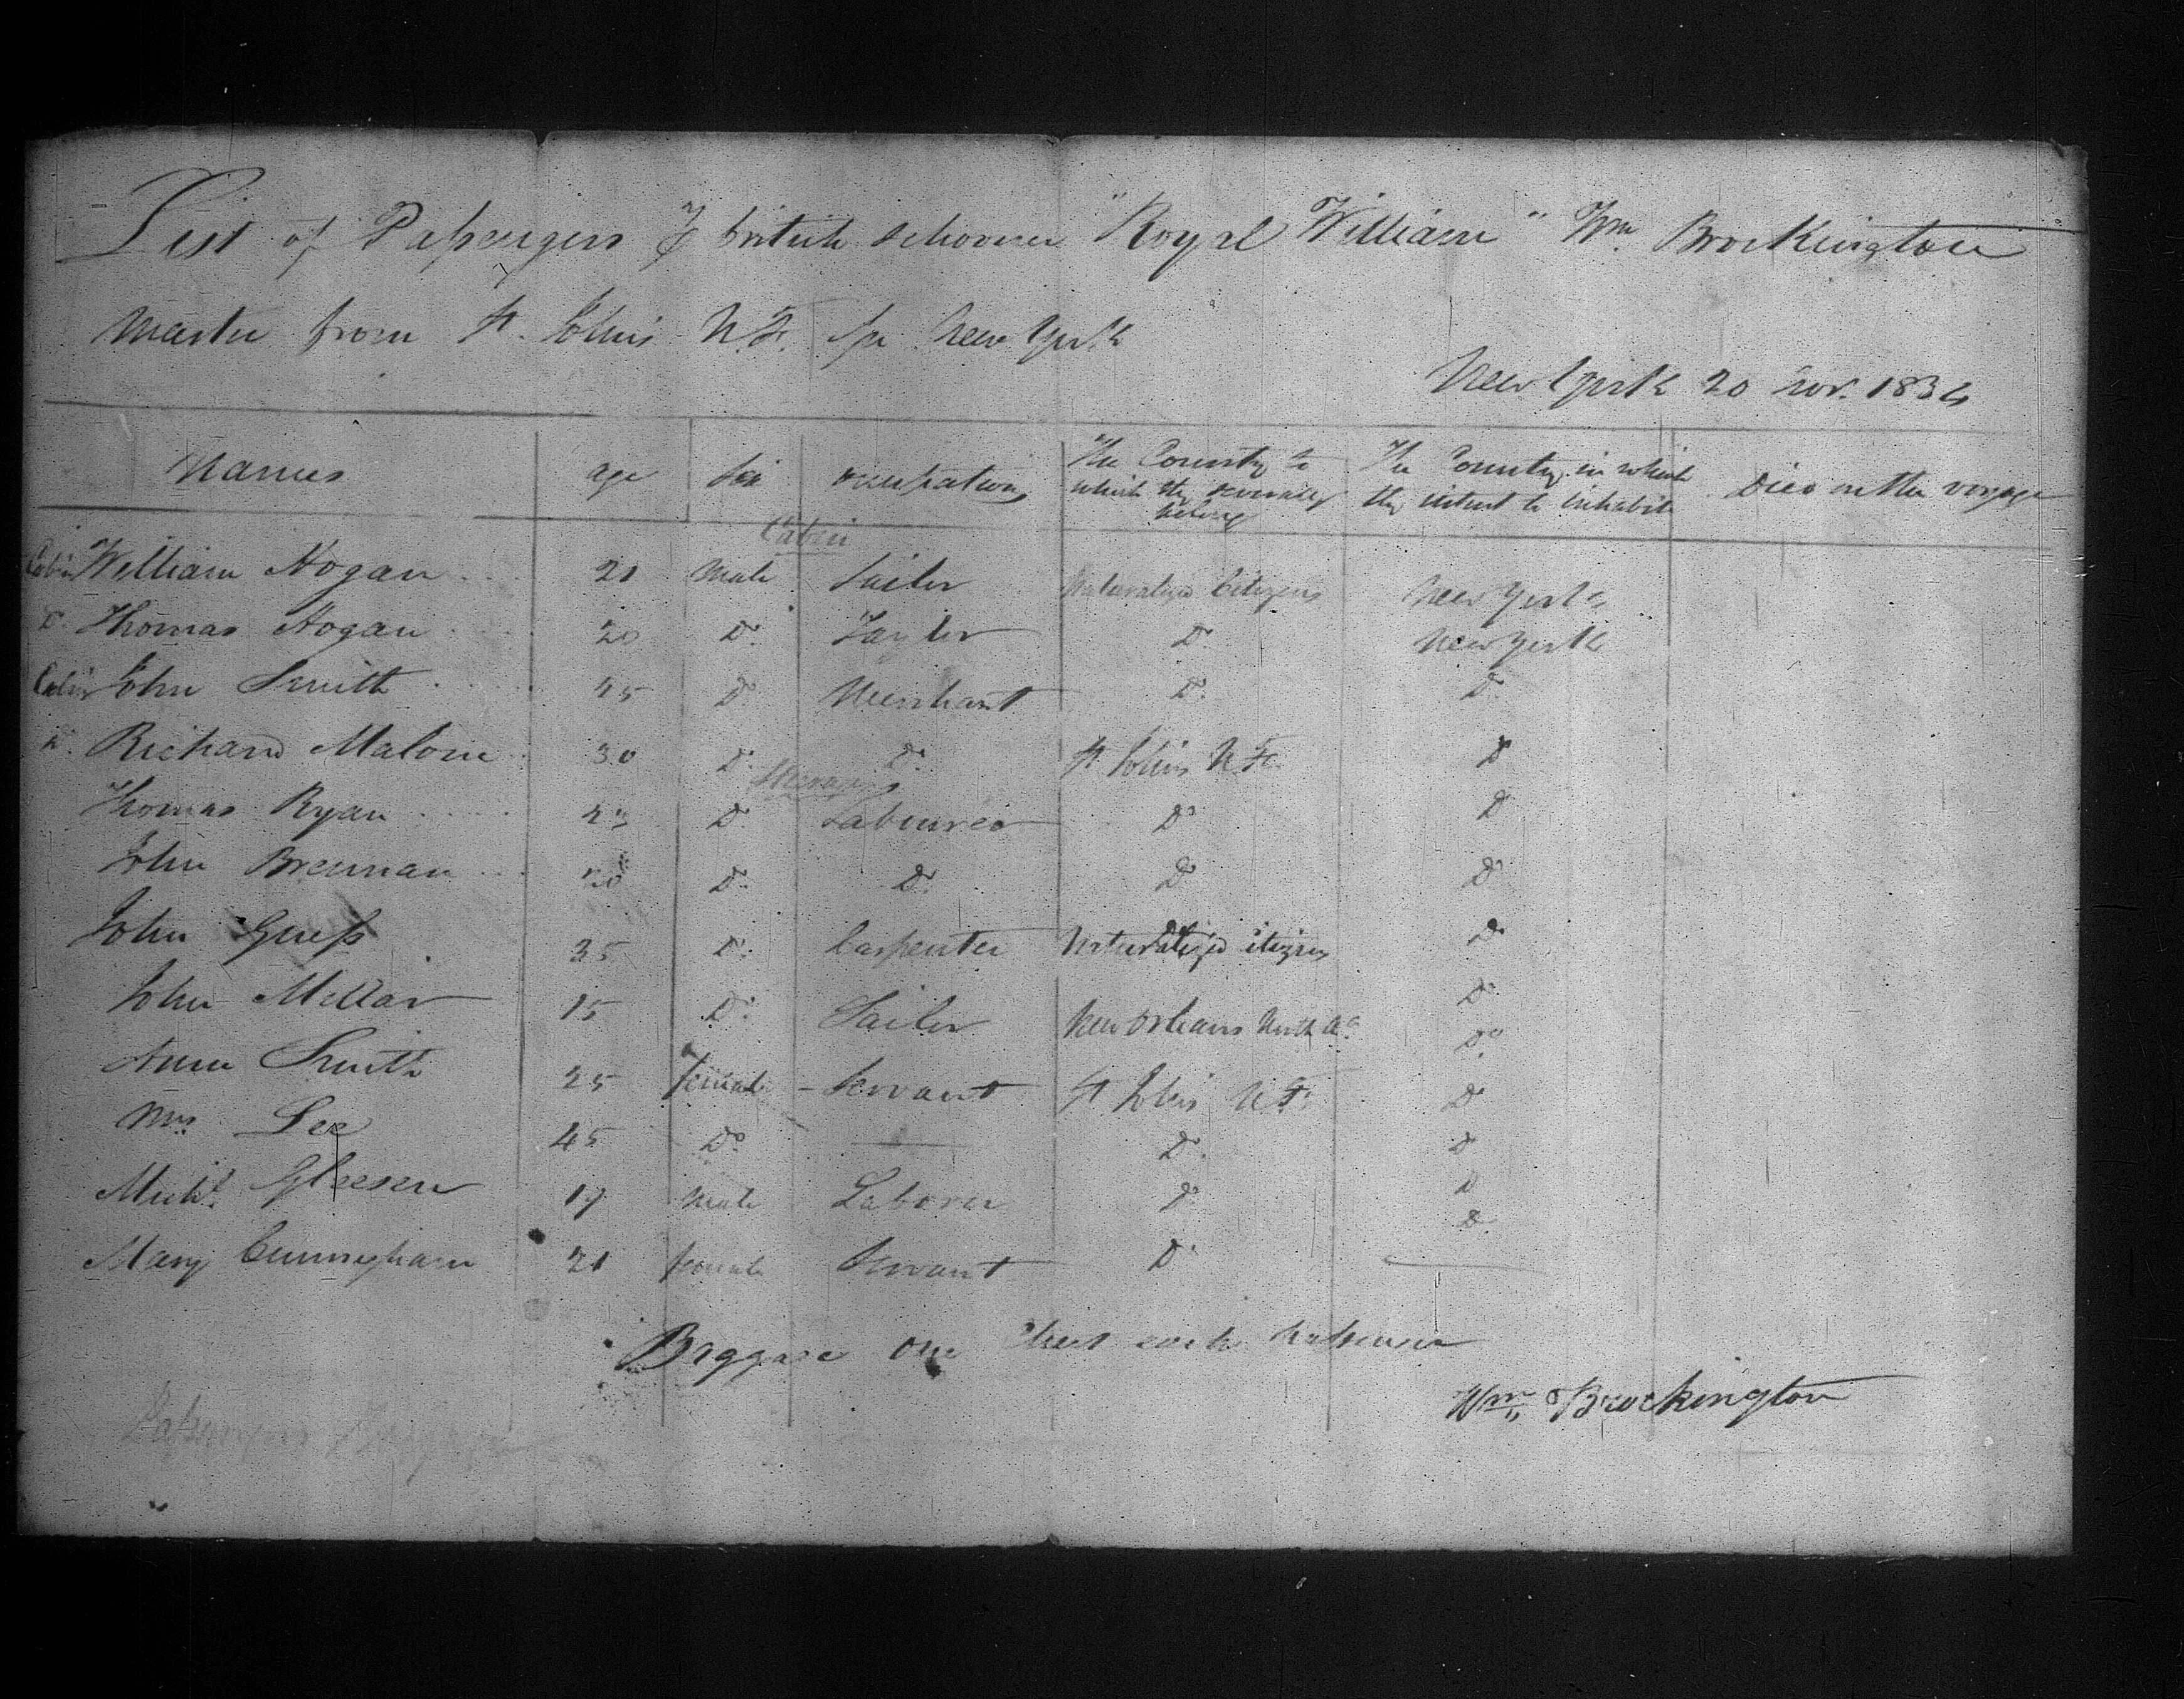 List of Passengers p british schooner "Royal William" Wm Brockington
Master from St. Johns N.F. for New York
New York 20 Nov. 1834
Names age Sex occupation The Country to which they severally belong The Country in which they intent to inhabit Died on the voyage
Cabin
Cabin William Hogan 21 Male Sailor Naturalized Citizens New York
Do Thomas Hogan 20 Do Taylor Do New York
Cabin John Smith 45 Do Merchant Do Do
Do Richard Malone 30 Do Do St Johns N.F. Do
Steerage
Thomas Ryan Do Labourer Do Do
John Brennan Do Do Do Do
John Guess 35 Do Carpenter Naturalized citizen Do
John Millar 15 Do Sailor New Orleans North Do
Do
Ann Smith 25 female Servant St Johns N.F. Do
Mrs Lee 45 Do Do Do
Michl Gleeson 19 Male Laborer Do Do
Do
Mary Cunningham 21 female Servant Do
Baggage One Chest each passenger
Wm Brockington